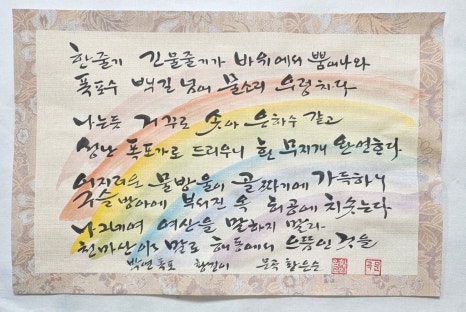 한줄기 긴물줄기가 바위에서 뿜어나와
폭포수 백길 넘어 물소리 우렁차다
나는듯 거꾸로 솟아 은하수 같고
성난 폭포가로 드리우니 흰 무지개 완연하다
어지러운 물방울이 골짜기에 가득하니
구슬 방아에 부서진 옥 허공에 치솟는다
나그네여 여산을 말하지 말라
천마산이야 말로 해동에서 으뜸인 것을
박연폭포 황진이 문곡 황은순